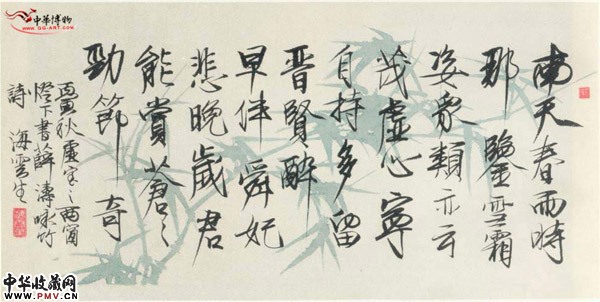 中華博物
WWW.GG-ART.COM
南天春雨時
那鑒雪霜
姿衆類亦云
茂虛心寧
自持多留
晋賢醉
早伴舜妃
悲晚歲君
能賞蒼々
勁節奇
寅秋虛室之西窗
燈下書薛濤咏竹
詩 海雲生
中华收藏网
WWW.PMV.CN